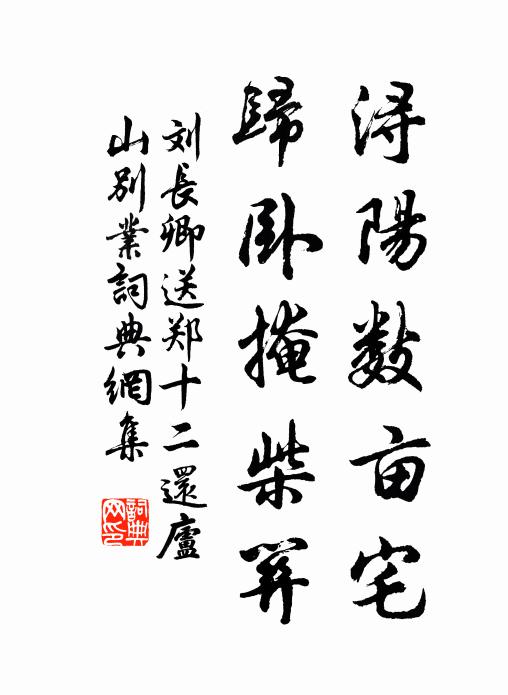 浔陽数亩宅
歸卧掩柴關
刘長卿送郑十二還廬
山別業詞典網集
詞典
网印